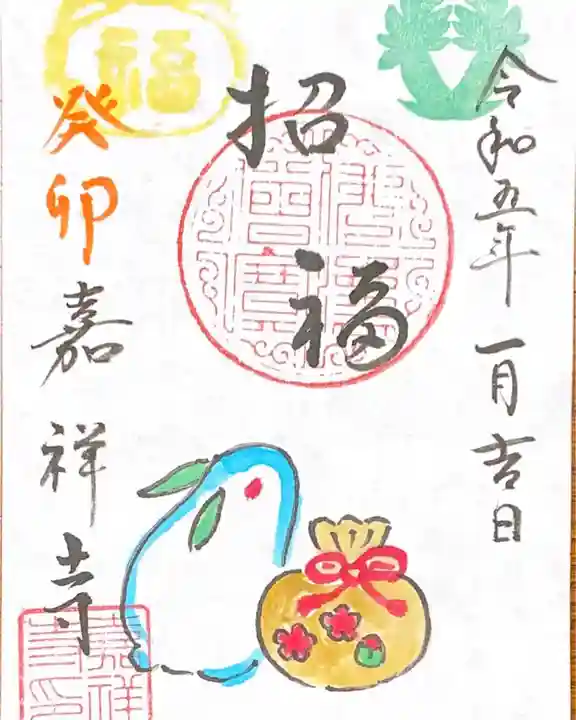 令和五年一月吉日
招福
癸卯
嘉祥寺
福
嘉祥
寺印